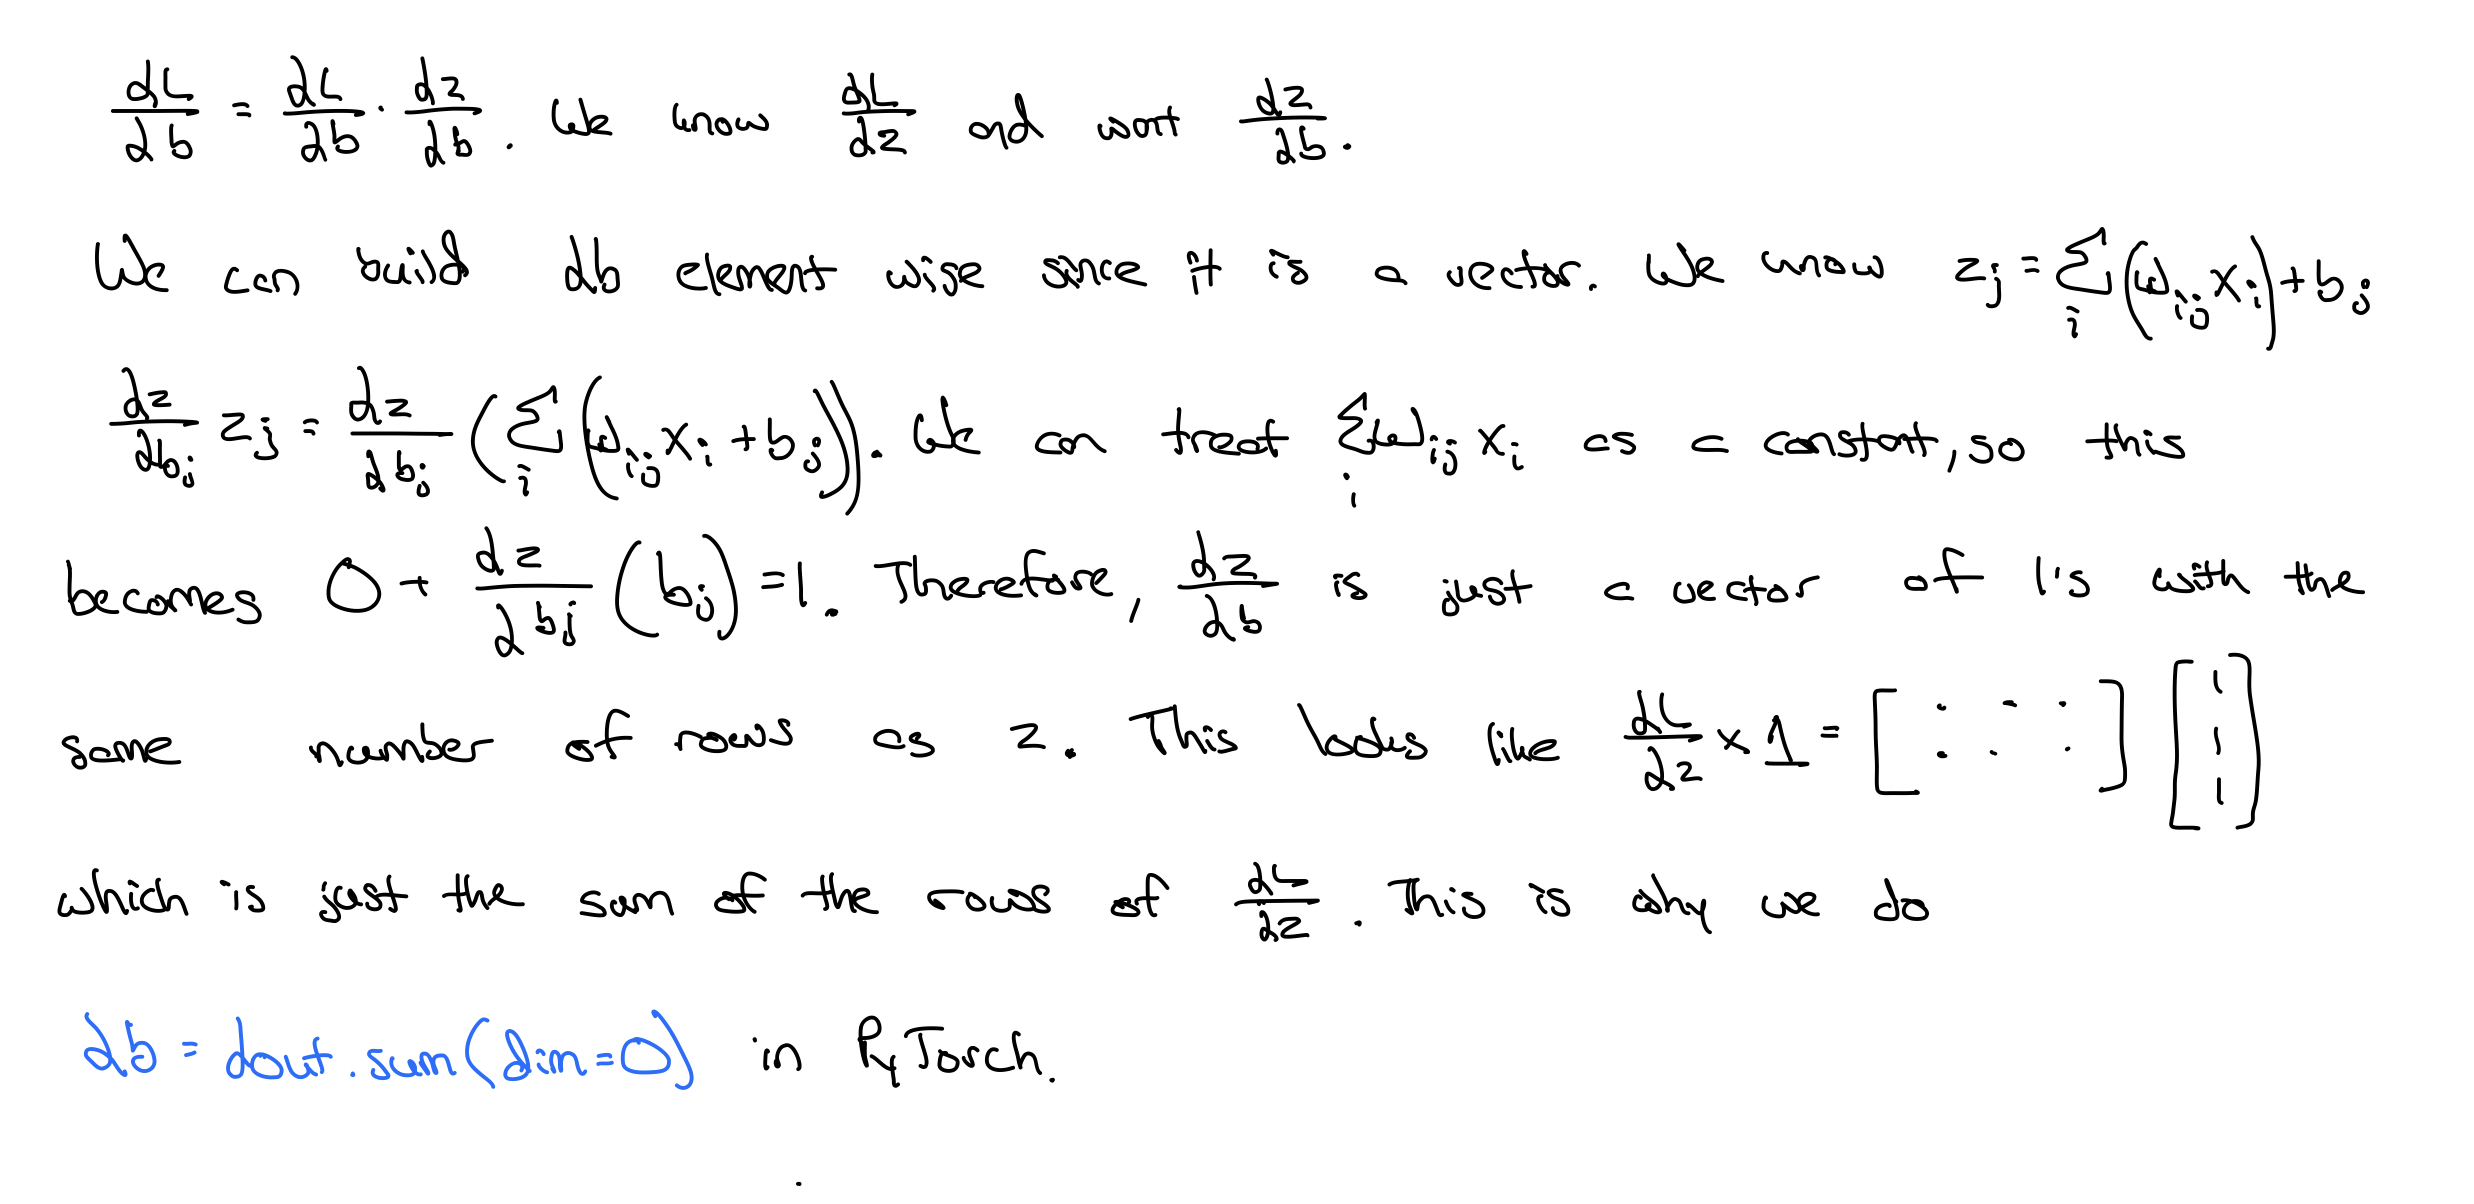 dL/db = dL/db · dz/db. We know dL/dz and want dz/db.
We can build db element wise since it is a vector. We know z_j = Σ_i (w_ij x_i) + b_j
dz/db_j z_j = dz/db_j (Σ_i (w_ij x_i + b_j)). We can treat Σ_i w_ij x_i as a constant, so this
becomes 0 + dz/db_j (b_j) = 1. Therefore, dz/db is just a vector of 1's with the
same number of rows as z. This looks like dL/dz × 1 = [: ·· :] [1 1 1]
which is just the sum of the rows of dL/dz. This is why we do
db = dout.sum(dim=0) in PyTorch.